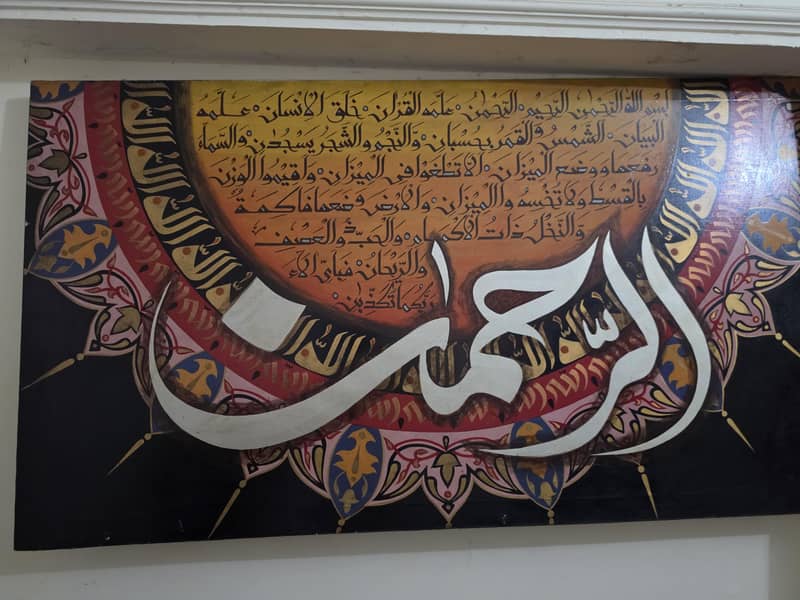 بسم الله الرحمن الرحيم الرحمن علم القران خلق الانسان علمه
البيان الشمس والقمر بحسبان والنجم والشجر يسجدن والسماء
رفعها ووضع الميزان الا تطغوا في الميزان واقيموا الوزن
بالقسط ولا تخسروا الميزان والارض وضعها فاكهة
والنخل ذات الاكمام والحب ذو العصف
والريحان فباي الاء
ربكما تكذبن
الرحمان
الله الله الله الله الله